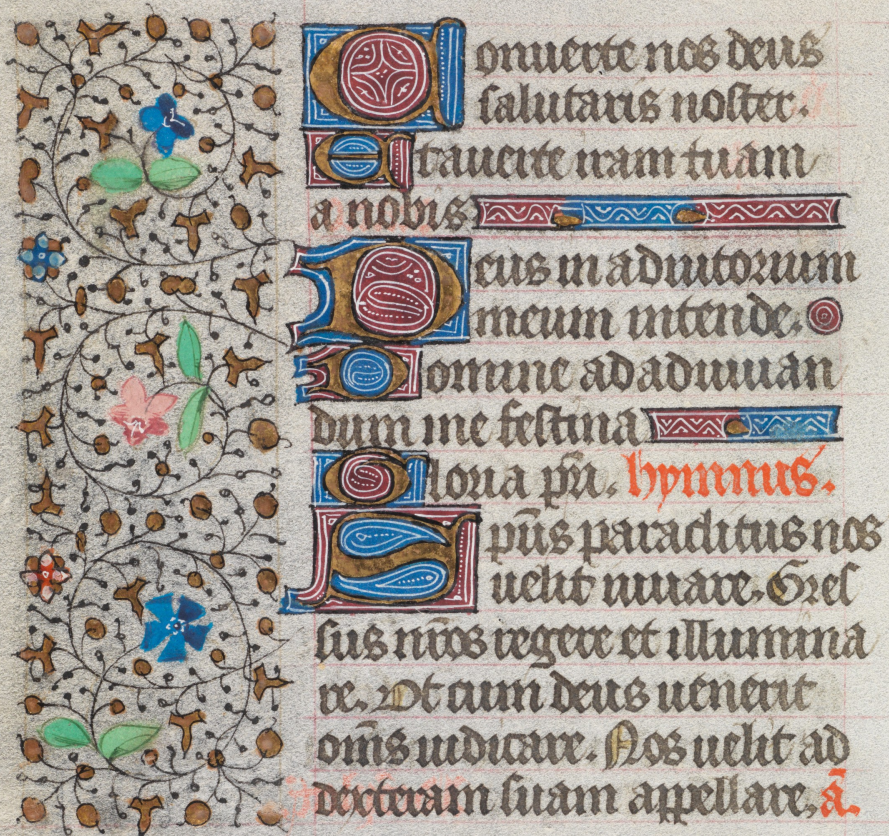 Conuerte nos deus
salutaris noster.
Et auerte iram tuam
a nobis
Deus in adiutorium
meum intende.
Domine ad adiuuan
dum me festina
Gloria pr̃i. hymnus.
Sp̃us paraclitus nos
uelit iuuare. Gres
sus nr̃os regere et illumina
re. Vt cum deus uenerit
om̃s iudicare. Nos uelit ad
dexteram suam appellare. ã.